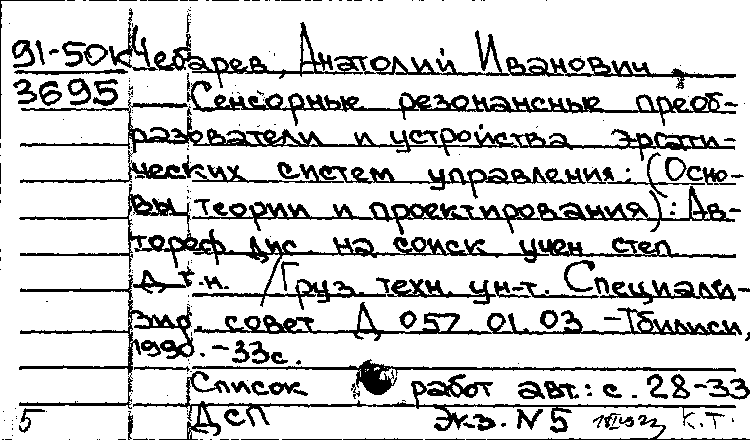 91-50к Чебарев, Анатолий Иванович
3695 Сенсорные резонансные преоб-
разователи и устройства эргати-
ческих систем управления: (Осно-
вы теории и проектирования): Ав-
тореф дис. на соиск. учен степ
д. т.н. / Груз. техн. ун-т. Специали-
зир. совет Д 057.01.03 - Тбилиси,
1990. - 33с.
Список работ авт.: с. 28-33
5 ДСП Экз. N 5 К.Т.